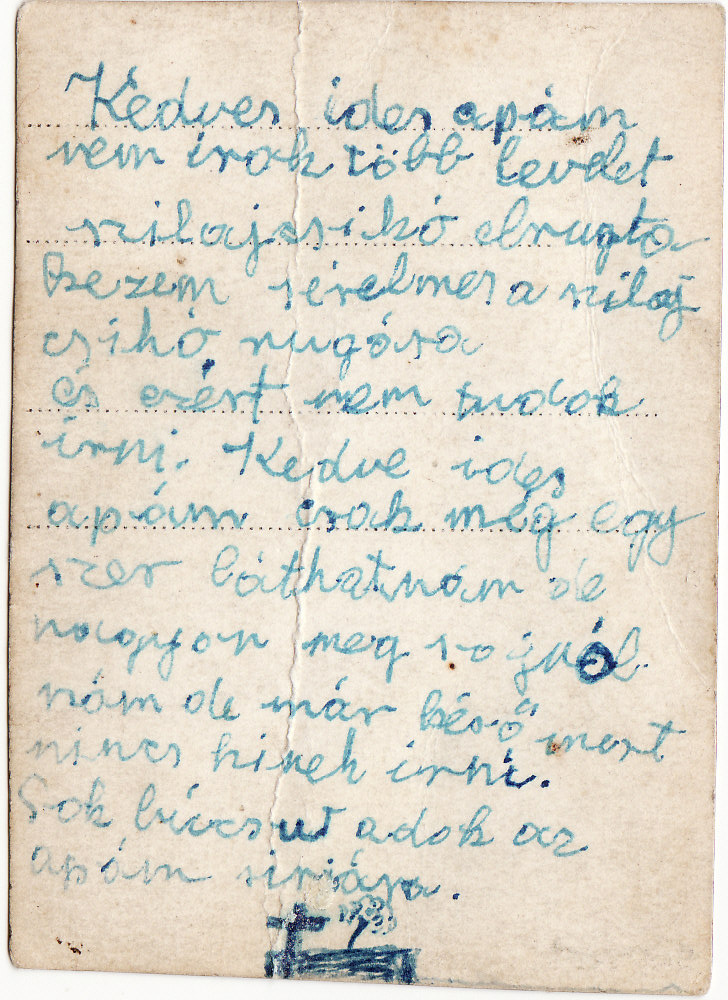 Kedves ides apám
nem irok több levelet
szilajcsikó elrugta
kezem sérelmes a szilaj
csikó rugósa
és ezért nem tudok
irni. Kedve ides
apám csak még egy
szer láthatnám de
nagyon meg sajnól
nám de már késő mert
nincs kinek irni.
Sok búcsut adok az
apám sirjára.